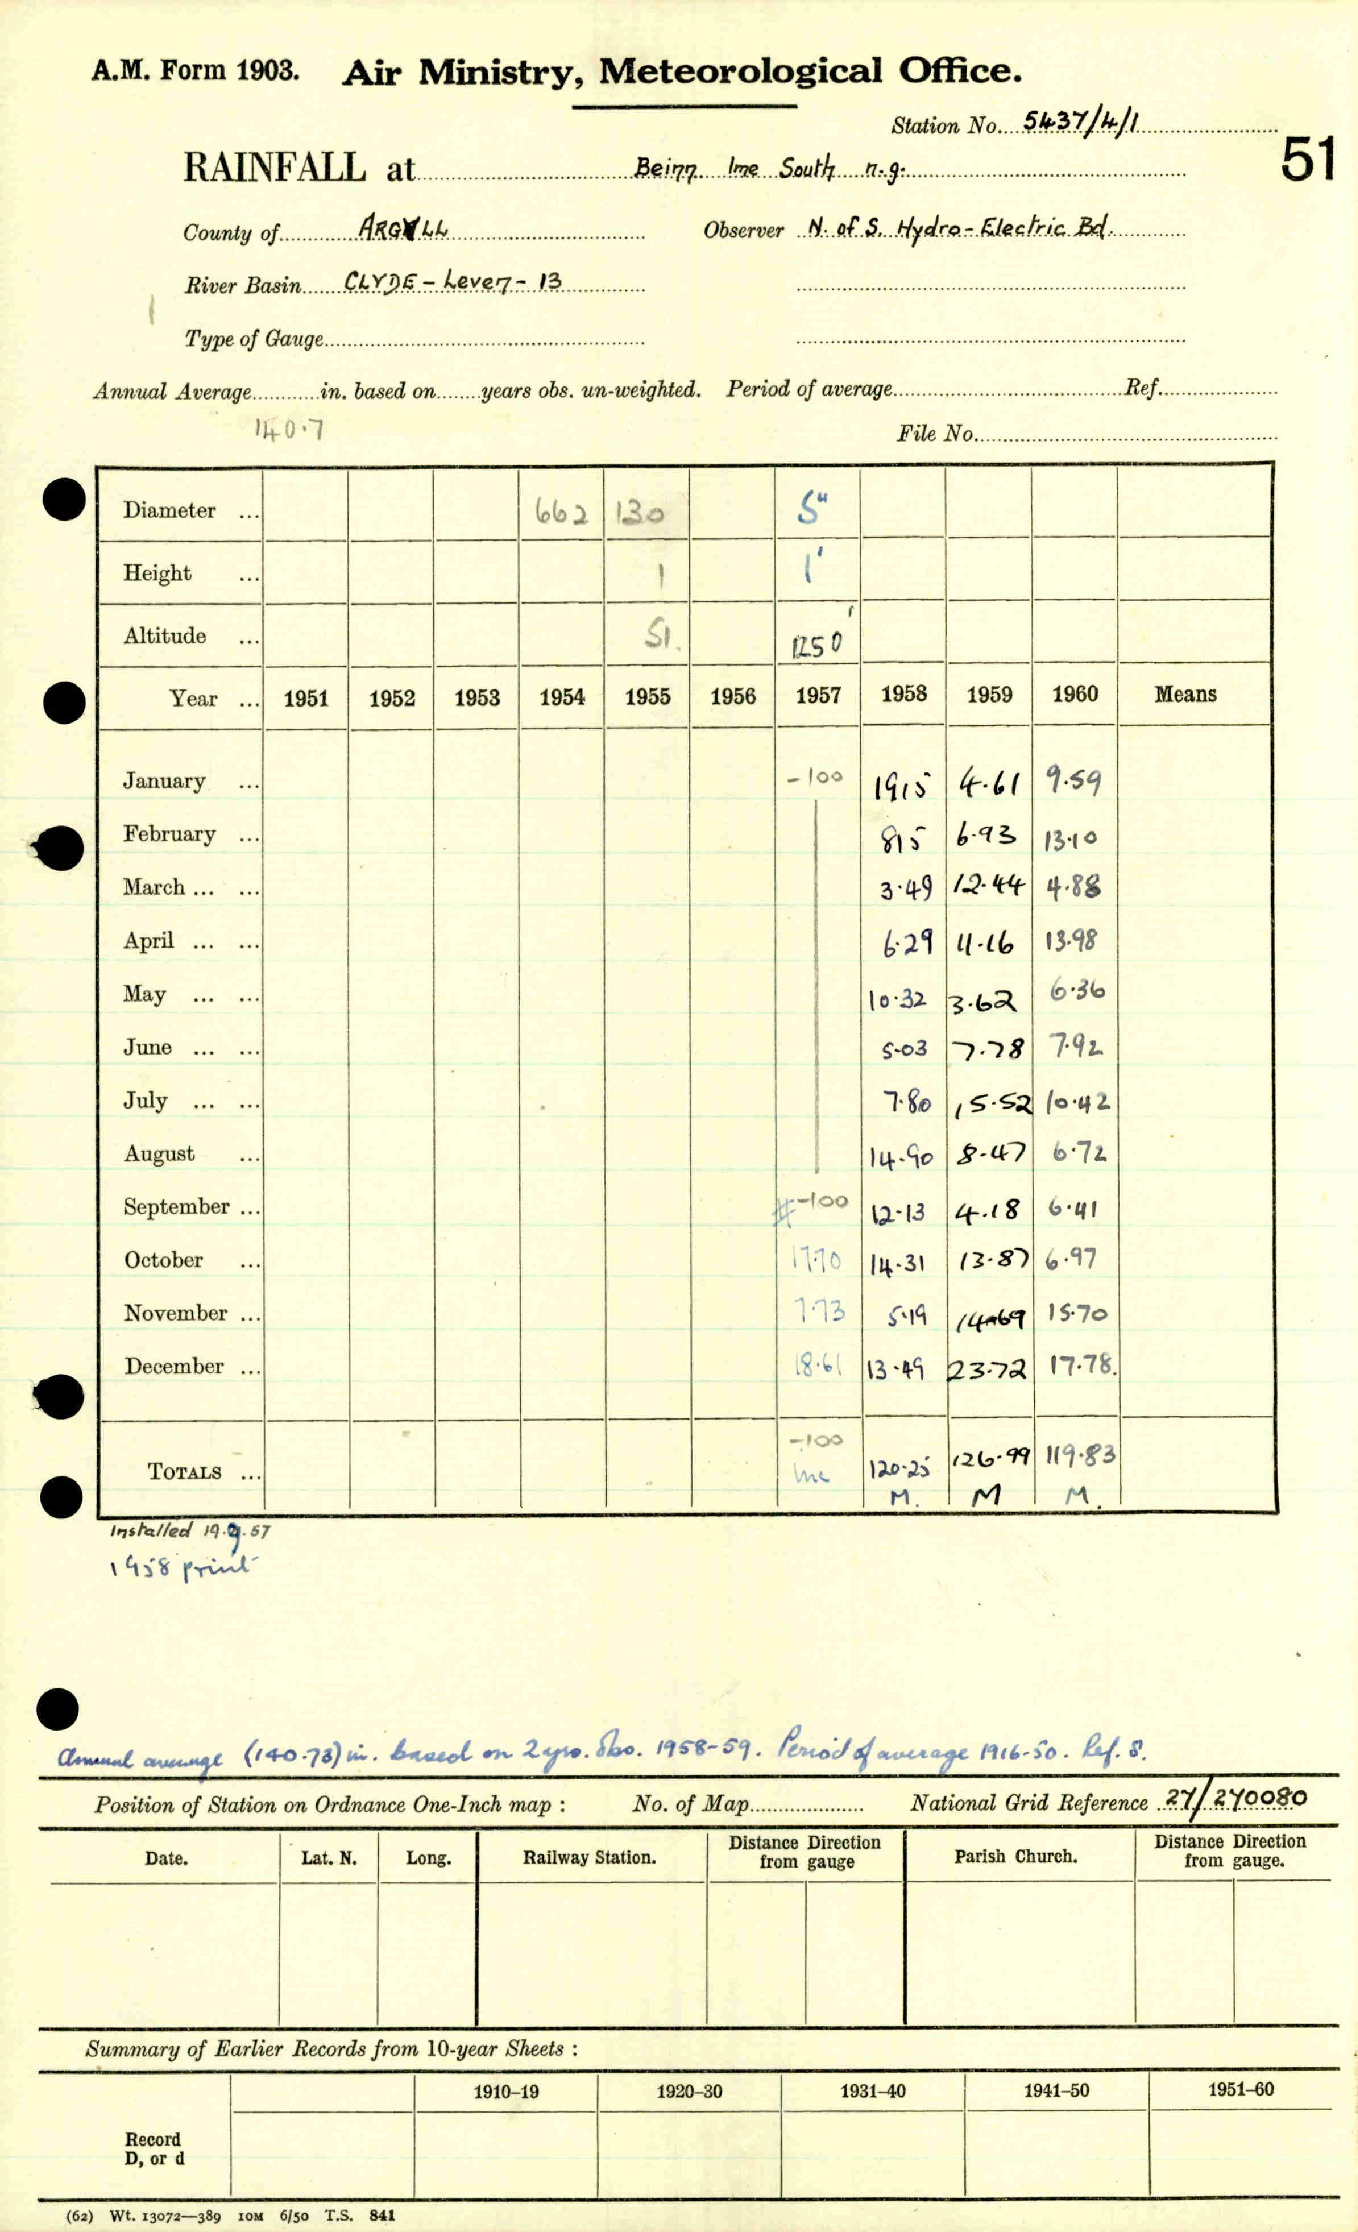 A.M. Form 1903. Air Ministry, Meteorological Office.
Station No. 5437/4/1
51
RAINFALL at Beinn Ime South n.g.
County of ARGYLL Observer N. of S. Hydro-Electric Bd.
River Basin CLYDE - Leven - 13
Type of Gauge
Annual Average in. based on years obs. un-weighted. Period of average Ref.
140.7
File No.
Diameter ... 662 130 5"
Height ... 1 1'
Altitude ... 51. 1250'
Year ... 1951 1952 1953 1954 1955 1956 1957 1958 1959 1960 Means
January ... -100 19.15 4.61 9.59
February ... 8.15 6.93 13.10
March ... ... 3.49 12.44 4.88
April ... ... 6.29 11.16 13.98
May ... ... 10.32 3.62 6.36
June ... ... 5.03 7.78 7.92
July ... ... 7.80 15.52 10.42
August ... 14.90 8.47 6.72
September ... # -100 12.13 4.18 6.41
October ... 17.70 14.31 13.87 6.97
November ... 7.73 5.19 14.69 15.70
December ... 18.61 13.49 23.72 17.78.
-100
TOTALS ... inc 120.25 126.99 119.83
M. M M.
Installed 19.9.57
1958 print
Annual average (140.73) in. based on 2 yrs. obs. 1958-59. Period of average 1916-50. Ref. S.
Position of Station on Ordnance One-Inch map : No. of Map National Grid Reference 27/270080
Date. Lat. N. Long. Railway Station. Distance Direction from gauge Parish Church. Distance Direction from gauge.
Summary of Earlier Records from 10-year Sheets :
1910–19 1920–30 1931–40 1941–50 1951–60
Record
D, or d
(62) Wt. 13072—389 10M 6/50 T.S. 841